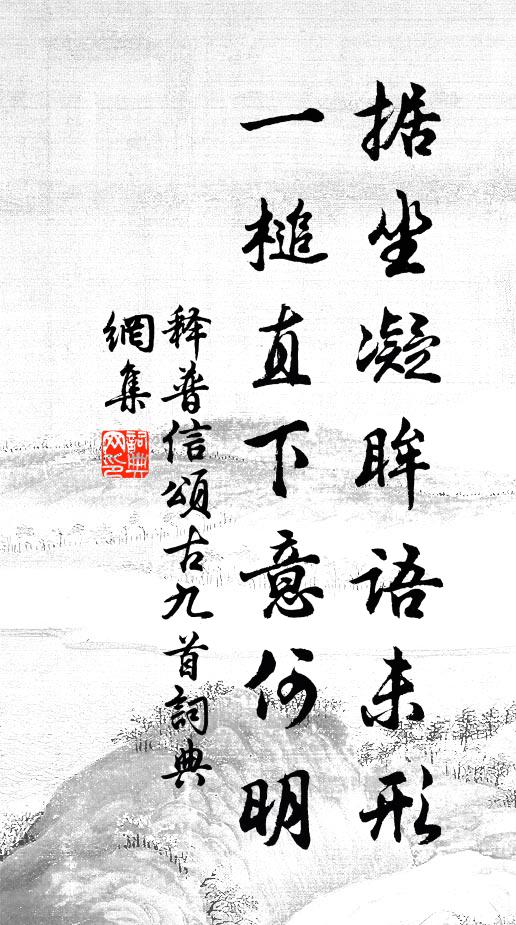 据坐凝眸语未形
一槌直下意何明
释普信颂古九首詞典
網集
詞典网印